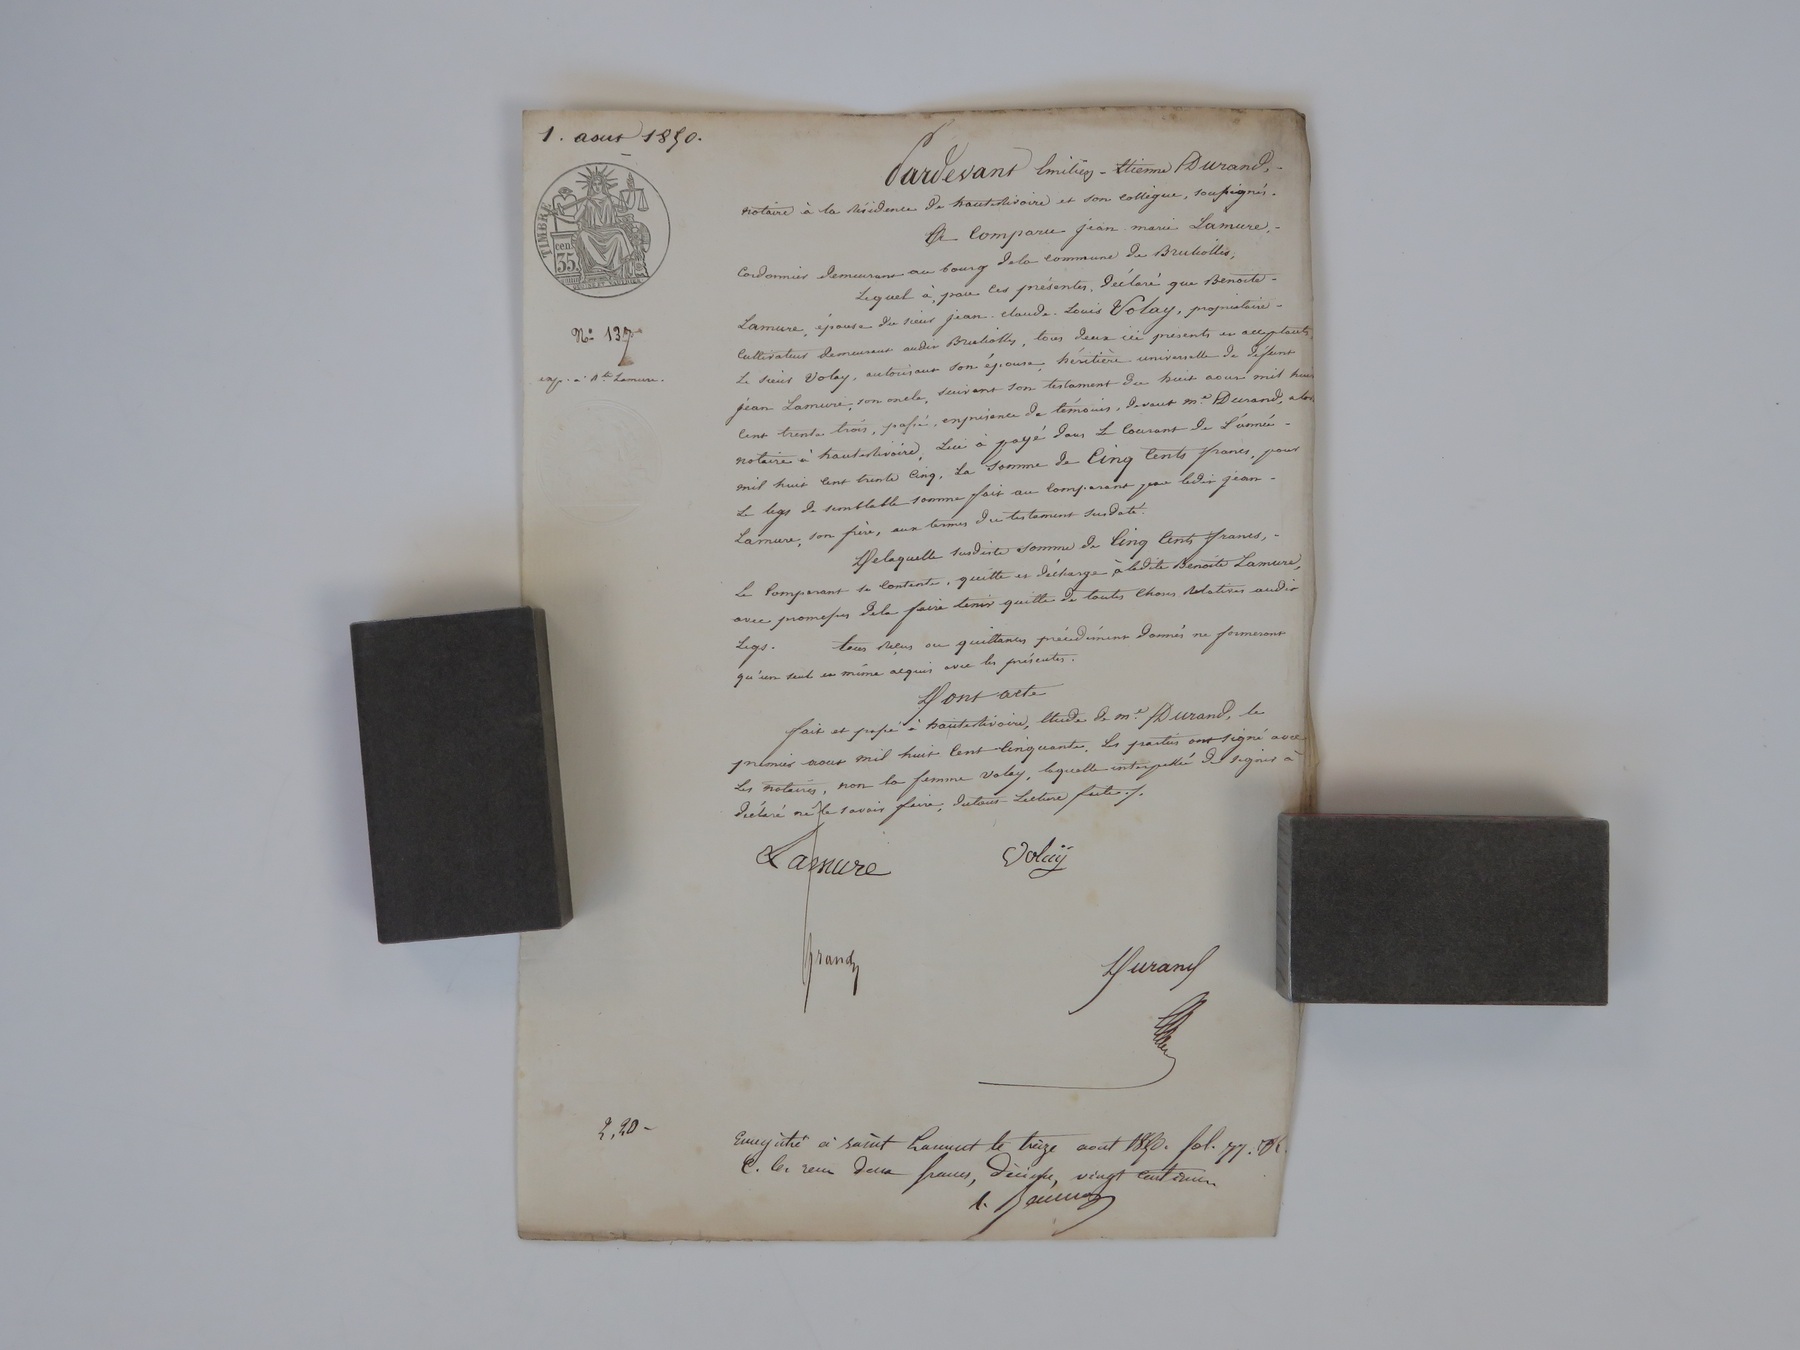 1. aout 1850.
TIMBRE
35 cen
No 137
exp. à Bte Lamure.
Pardevant Emilien-Etienne Durand,
notaire à la résidence de hauterivoire et son collègue, soussignés.
A Comparu jean marie Lamure,
Cordonnier demeurant au bourg dela commune de Brullioles,
Lequel a, par ces présentes, déclaré que Benoite
Lamure, épouse du sieur jean-claude-Louis Volay, propriétaire
Cultivateur demeurant audit Brullioles, tous deux ici présents et acceptants,
Le sieur Volay, autorisant son épouse, héritière universelle de défunt
jean Lamure, son oncle, suivant son testament du huit aout mil huit
Cent trente trois, passé, enprésence de témoins, devant me Durand, alors
notaire à hauterivoire, Lui a payé dans Le Courant de L'année
mil huit Cent trente Cinq, La Somme de Cinq Cents francs, pour
Le legs de semblable somme fait au Comparant par ledit jean
Lamure, son frère, aux termes du testament susdaté.
Delaquelle susdite somme de Cinq Cents francs,
Le Comparant se contente, quitte et décharge ladite Benoite Lamure,
avec promesses dela faire tenir quitte de toutes choses relatives audit
Legs. tous reçus ou quittances précédemment donnés ne formeront
qu'un seul et même acquis avec les présentes.
Dont acte
fait et passé à hauterivoire, Etude de me Durand, le
premier aout mil huit Cent Cinquante. Les parties ont signé avec
Les notaires, non la femme Volay, laquelle interpellée de signer a
déclaré ne le savoir faire, detout Lecture faite./.
Lamure Volay
Grand
Durand
2,20
Enregistré à saint Laurent le treize aout 1850. fol. 77. R
C. 1er reçu deux francs, décime, vingt centimes